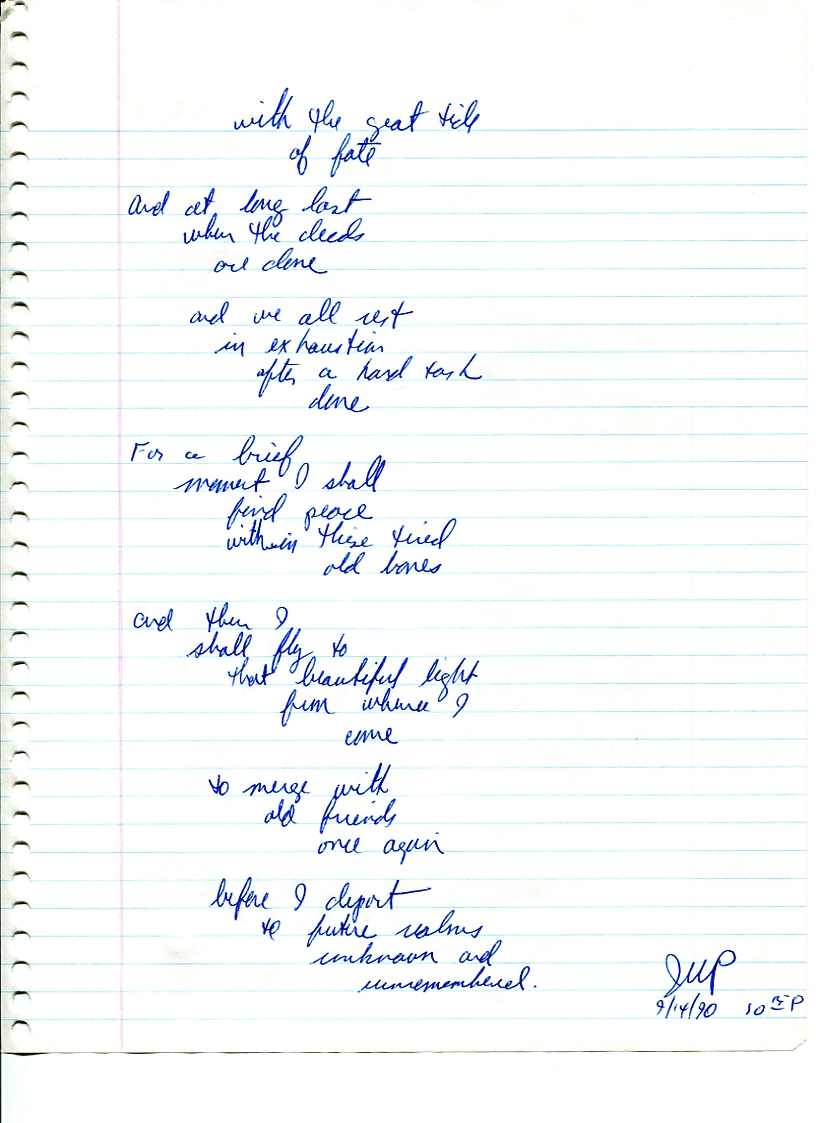 with the great tide
of fate
and at long last
when the deeds
are done
and we all rest
in exhaustion
after a hard task
done
For a brief
moment I shall
find peace
within these tired
old bones
and then I
shall fly to
that beautiful light
from whence I
come
to merge with
old friends
once again
before I depart
to future realms
unknown and
unremembered.
9/14/90